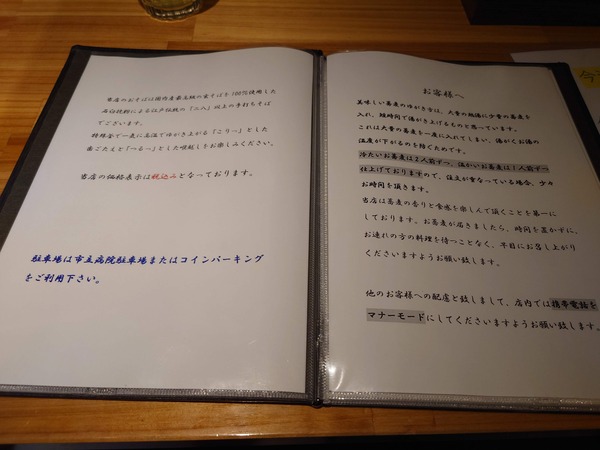 当店のおそばは国内産最高級の玄そばを100%使用した
石臼挽粉による江戸伝統の「二八」以上の手打ちそば
でございます。
特殊釜で一気に高温でゆがき上がる「こりっ」とした
歯ごたえと「つるっ」とした喉越しをお楽しみください。
当店の価格表示は税込みとなっております。
駐車場は市立病院駐車場またはコインパーキング
をご利用下さい。
お客様へ
美味しい蕎麦のゆがき方は、大量の熱湯に少量の蕎麦を
入れ、短時間で湯がき上げるものと思っています。
これは大量の蕎麦を一度に入れてしまい、湯がくお湯の
温度が下がるのを除くためです。
冷たいお蕎麦は2人前ずつ、温かいお蕎麦は1人前ずつ
仕上げておりますので、注文が重なっている場合、少々
お時間を頂きます。
当店は蕎麦の香りと食感を楽しんで頂くことを第一に
しております。お蕎麦が届きましたら、時間を置かずに、
お連れの方の料理を待つことなく、早目にお召し上がり
くださいますようお願い致します。
他のお客様への配慮と致しまして、店内では携帯電話を
マナーモードにしてくださいますようお願い致します。
今